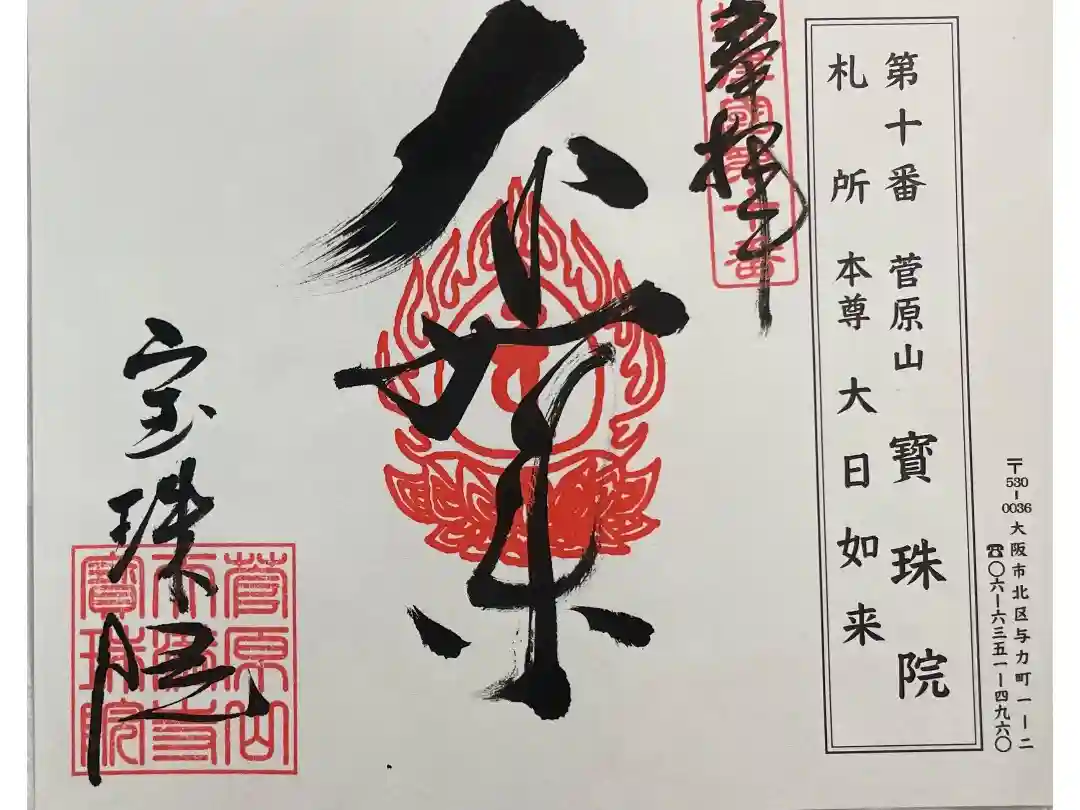 〒530-0036 大阪市北区与力町一ー二
☎〇六ー六三五一ー四九六〇
第十番 菅原山 寶珠院
札所 本尊 大日如来
奉拝
國第十番
如来
宝珠院
菅原山
寶珠院